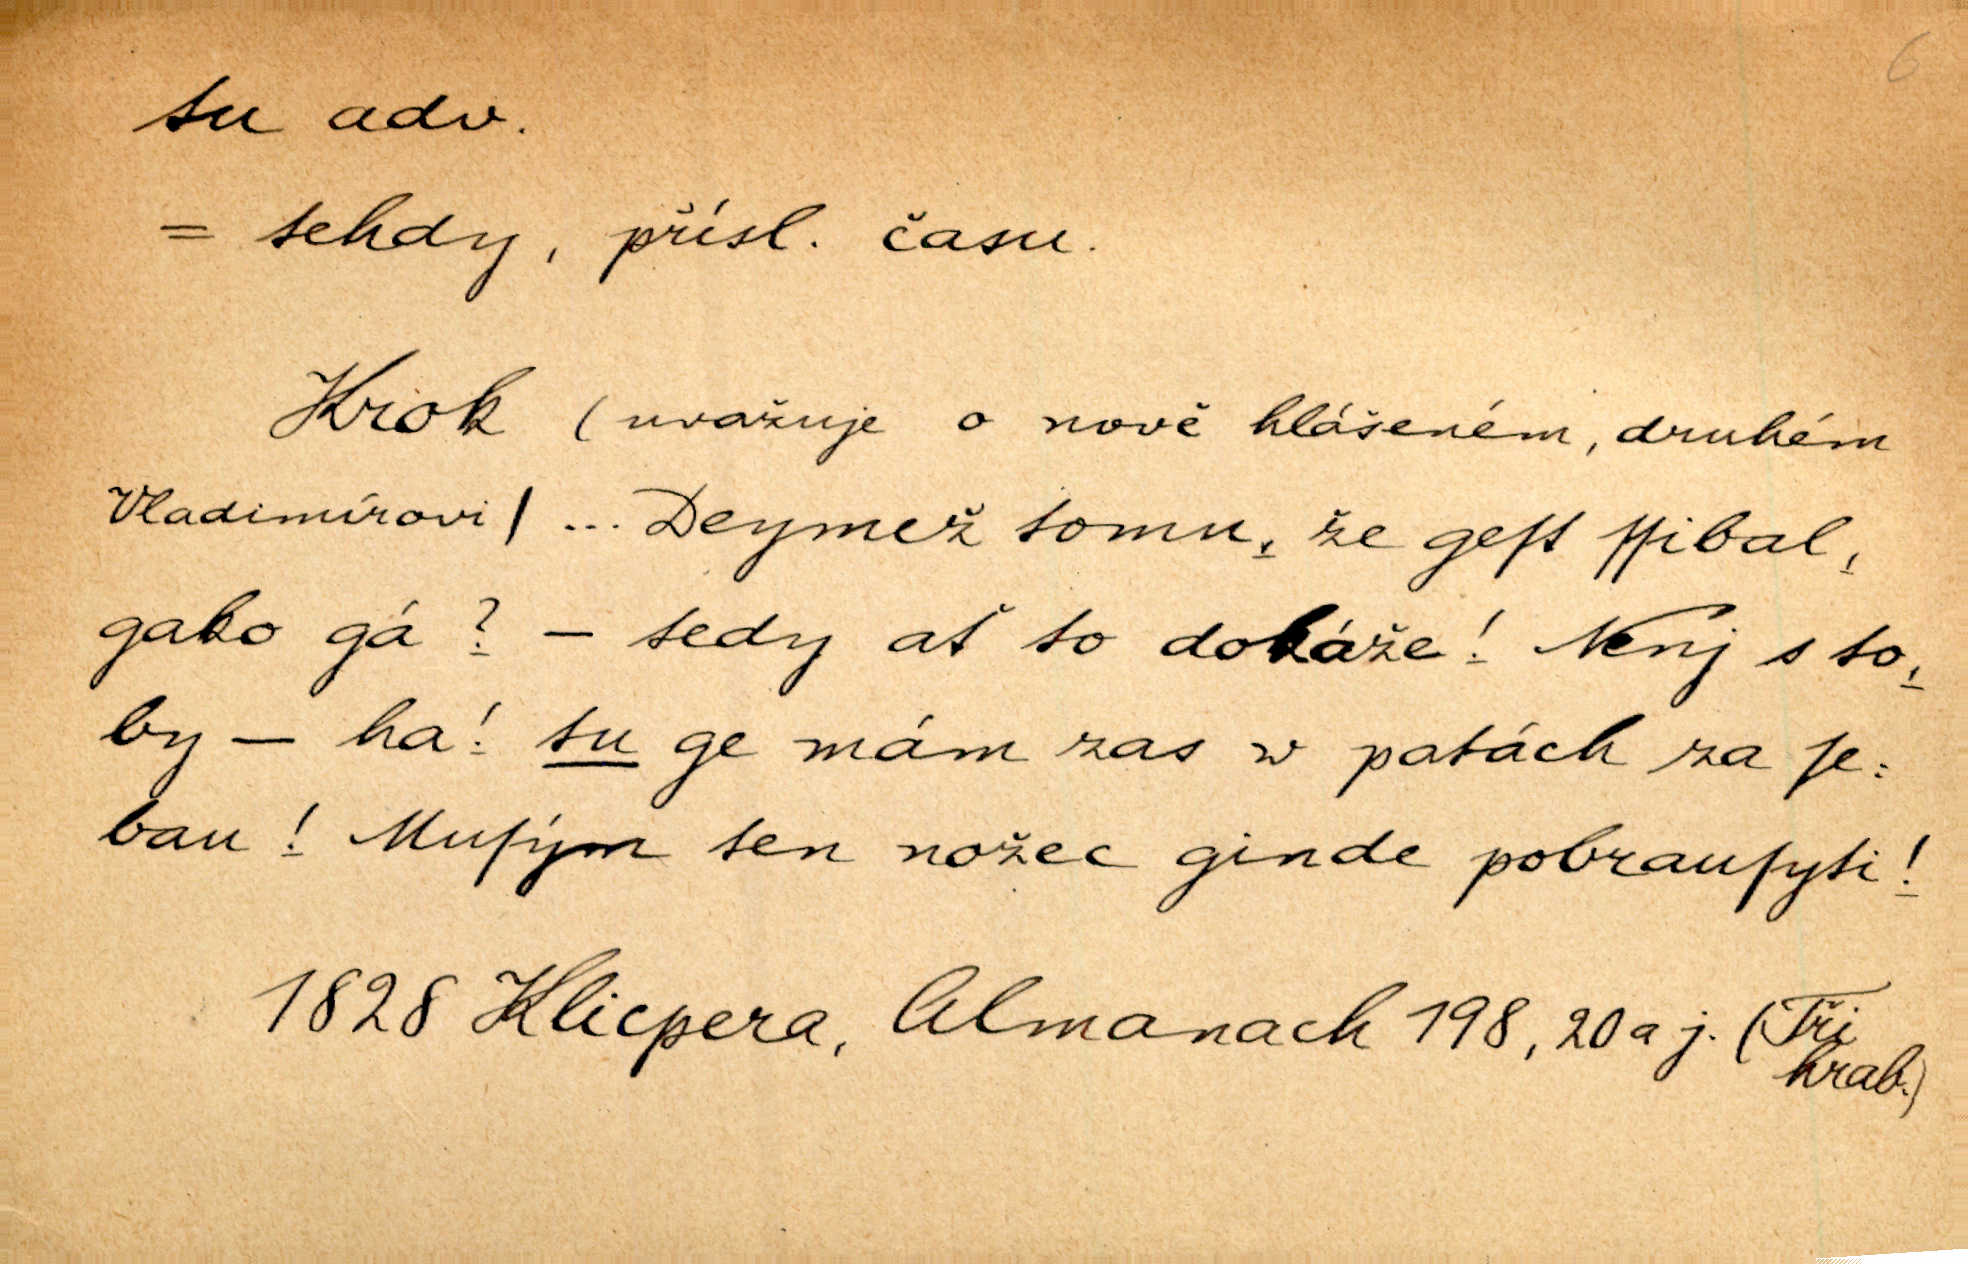 6
tu adv.
= tehdy, přísl. času.
Krok (uvažuje o nově hlášeném, druhém
Vladimírovi) ... Deymež tomu, že geſt ſſibal,
gako gá? – tedy ať to dokáže! Nenj s to,
by – ha! tu ge mám zas w patách za ſe:
bau! Muſým ten nožec ginde pobrauſyti!
1828 Klicpera, Almanach 198, 20 a j. (Tři
hrab.)